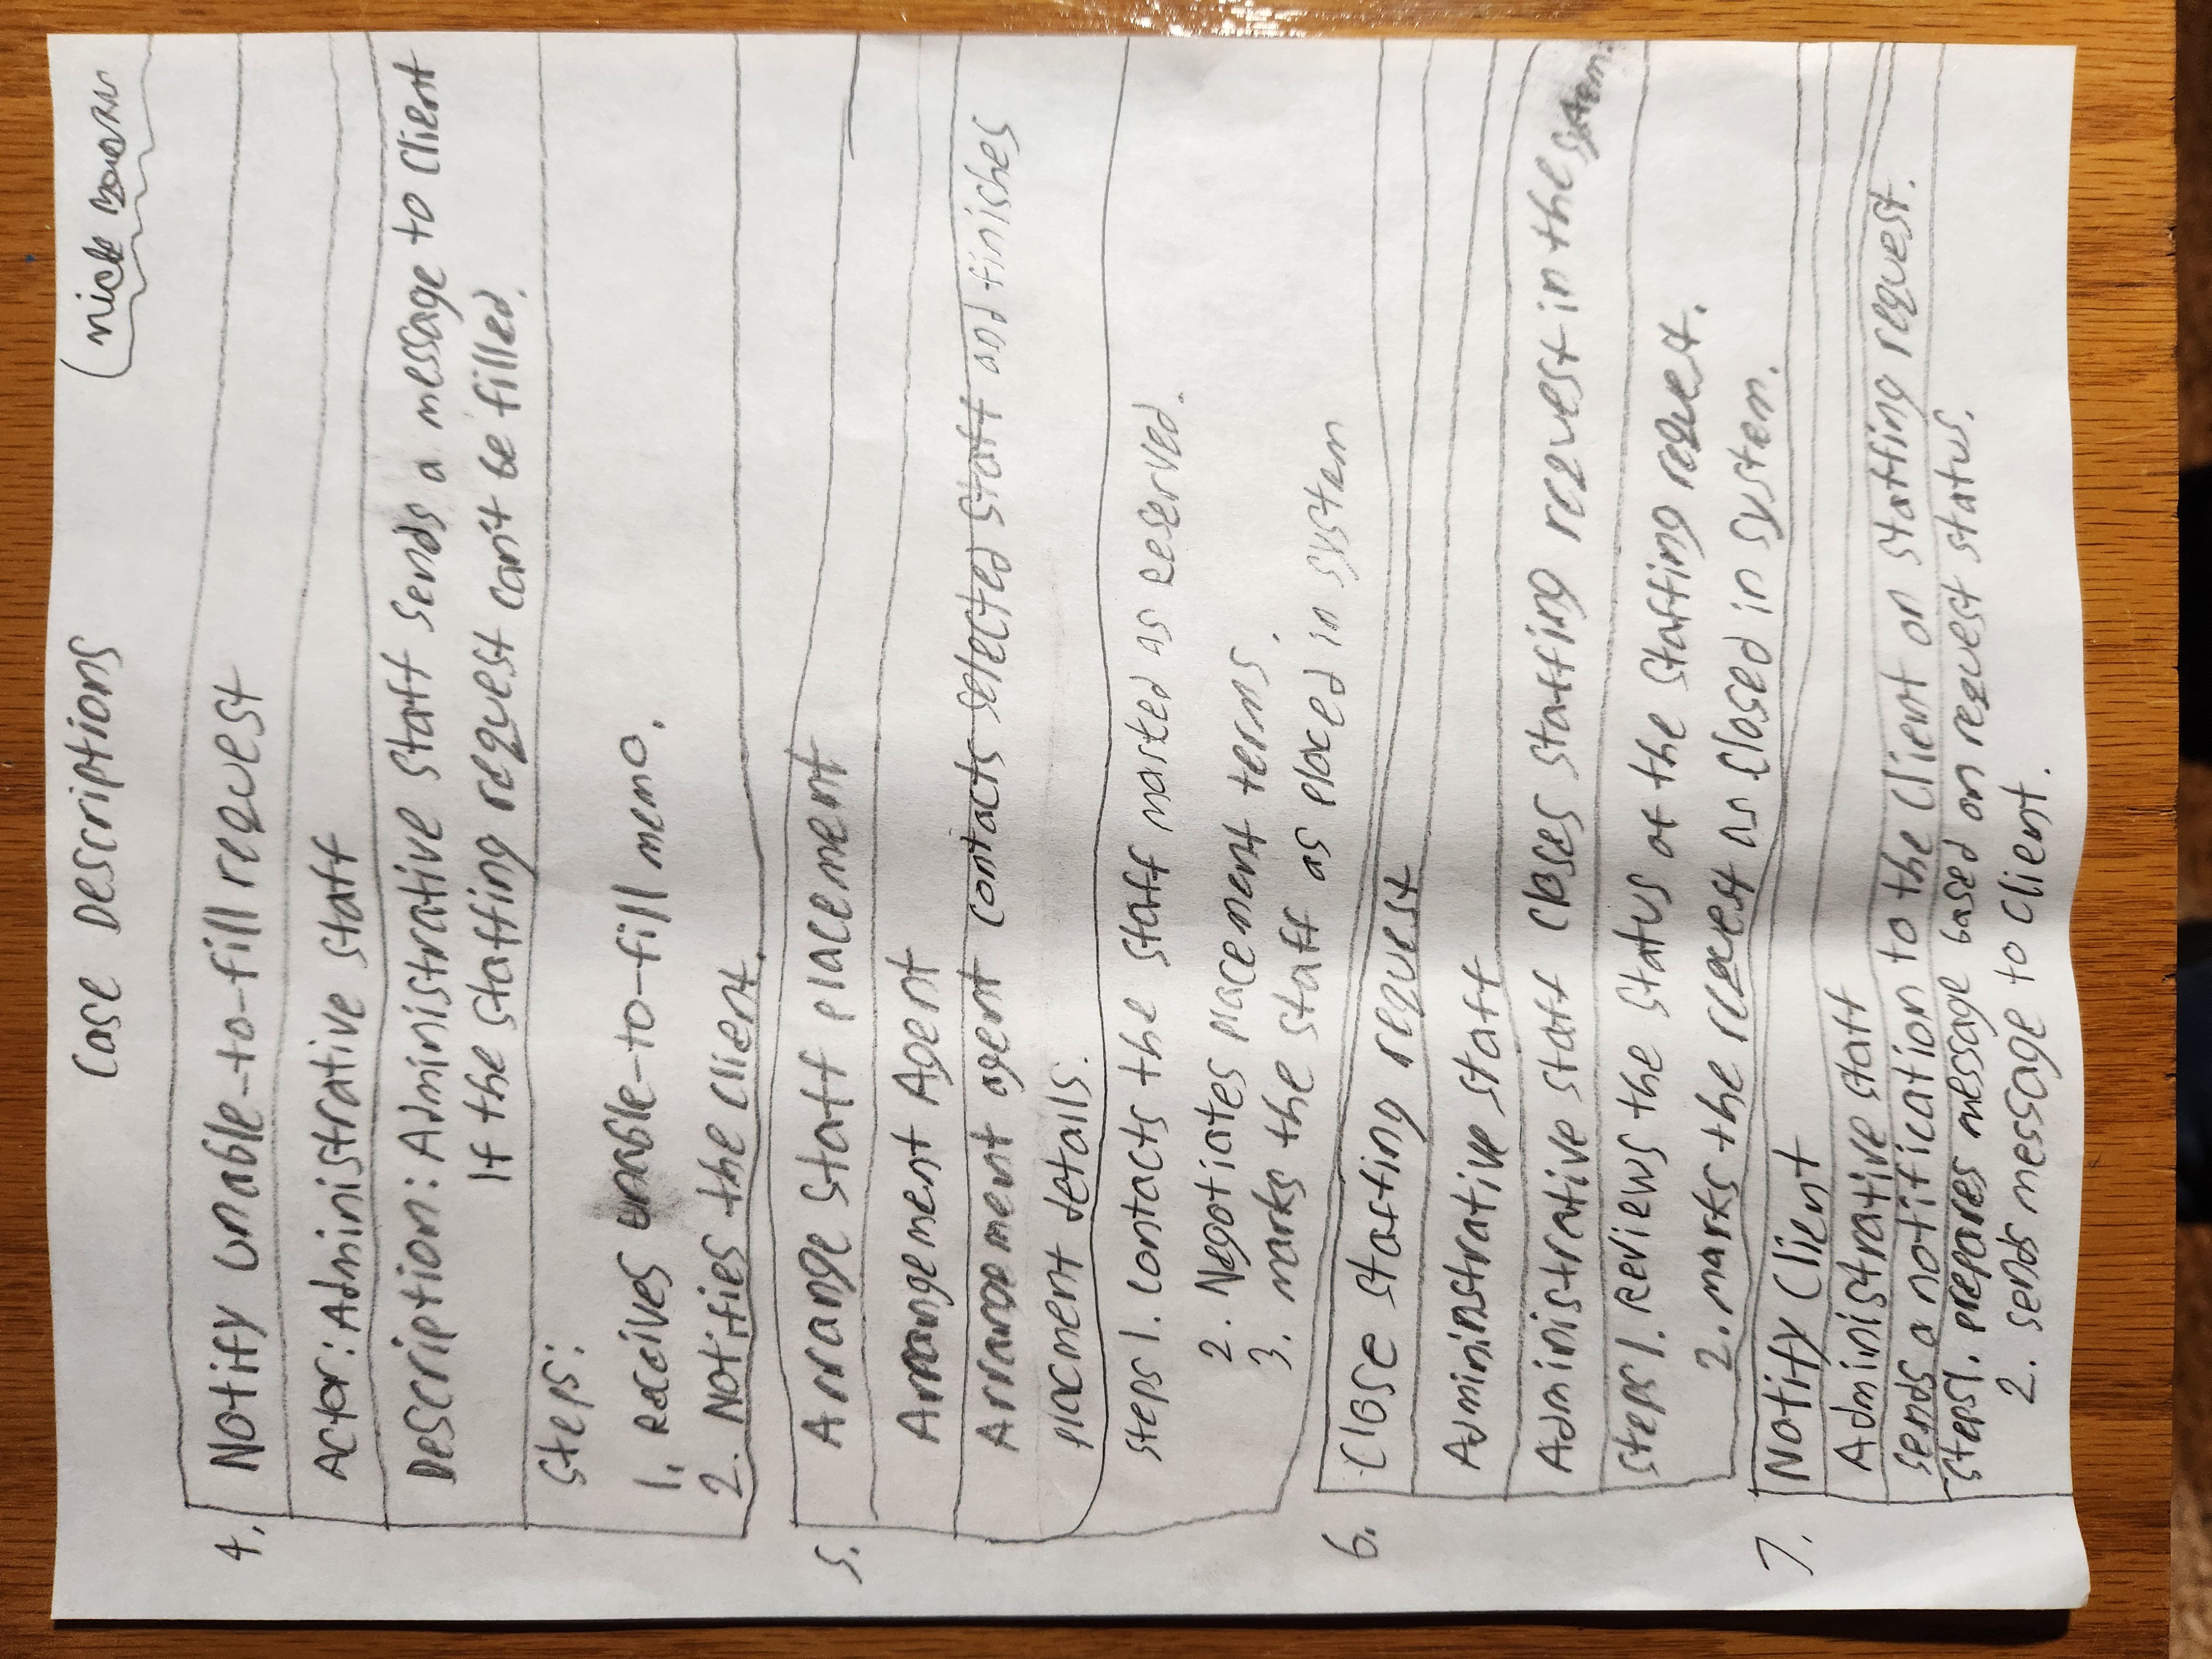 Case Descriptions
(nick
4. Notify unable-to-fill request
Actor: Administrative staff
Description: Administrative staff sends a message to client
If the staffing request can't be filled.
Steps:
1. Receives unable-to-fill memo.
2. Notifies the client.
5. Arrange staff placement
Arrangement Agent
Arrangement agent contacts selected staff and finishes
placment details.
Steps 1. contacts the staff marked as reserved.
2. Negotiates placement terms.
3. marks the staff as placed in system
6. Close staffing request
Administrative staff
Administrative staff closes staffing request in the system.
Steps 1. Reviews the status of the staffing request.
2. marks the request as closed in system.
7. Notify Client
Administrative staff
sends a notification to the client on staffing request.
Steps 1. prepares message based on request status.
2. sends message to client.